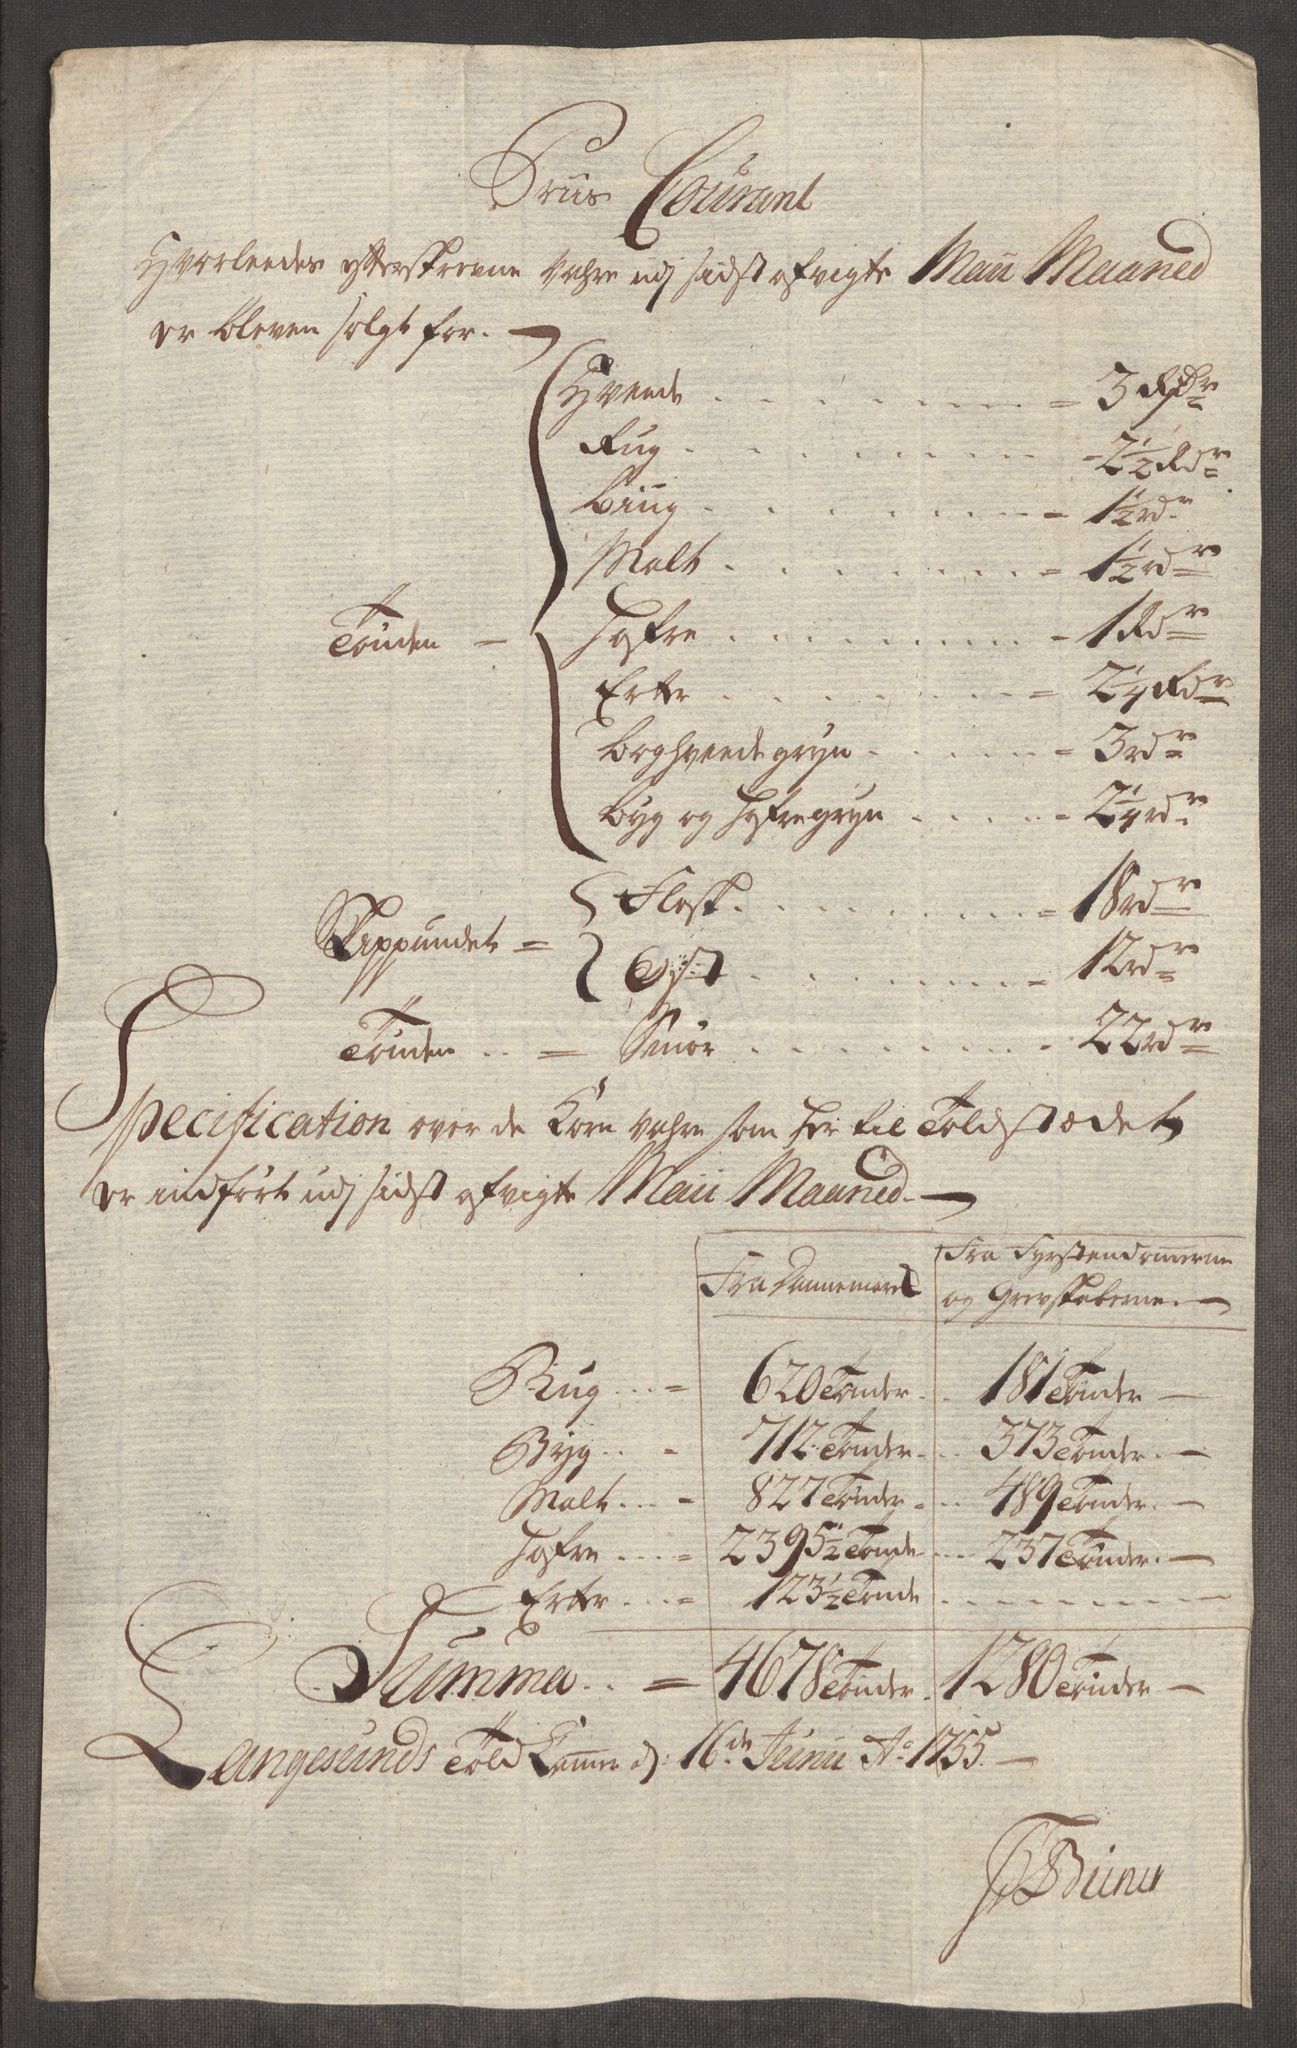 Priis Courant
Hvorleedes efterskrevne vahre udj sidst afvigte Maii Maaned
er bleven solgt for.
Hveede - 3 Rdr
Rug - 2½ Rdr
biug - 1½ rdr
Malt - 1½ rdr
Tönden - Hafre - 1 Rdr
Erter - 2¼ Rdr
boghveede gryn - 3 rdr
byg og hafre gryn - 2¼ rdr
Skippundet = Flesk - 18 rdr
Ost - 12 rdr
Tönden = Smör - 22 rdr
Specification over de Korn vahre som her til Toldstædet
er indfört udj sidst afvigte Maii Maaned.
Fra Dannemarck Fra Fyrstendomerne
og Grevskaberne
Rug = 620 Tönder 181 Tönder
Byg - 712 Tönder 373 Tönder
Malt - 827 Tönder 489 Tönder
Hafre = 2395½ Tönde 237 Tönder
Erter = 123½ Tönde
Summa = 4678 Tönder 1280 Tönder
Langesunds Told Kamer d: 16de Junii Ao 1755.